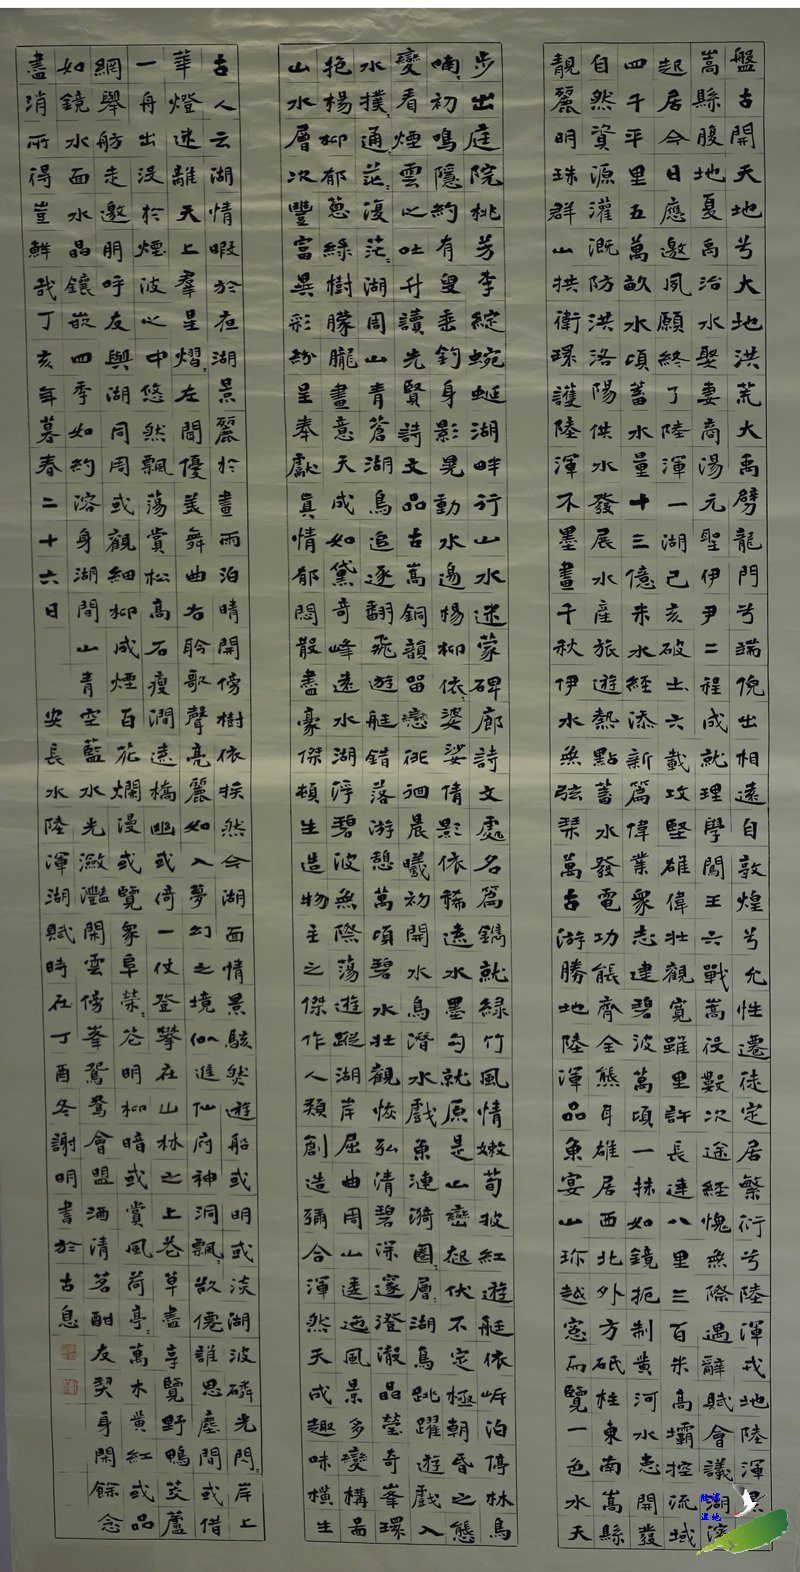 盤古開天地兮大地洪荒大禹劈龍門兮端倪出相遠自敦煌兮允性遷徙定居繁衍兮陸渾戎地陸渾景
嵩縣腹地夏禹治水娶妻商湯元聖伊尹二程成就理學闖王六戰嵩役數次途經愧無際遇辭賦會議湖濱
起居今日應邀夙願終了陸渾一湖己亥破土六載攻堅雄偉壯觀寬雖里許長達八里三百米高壩控流域
四千平里五萬畝水頃蓄水量十三億米水經添新篇偉業衆志建碧波萬頃一抹如鏡扼制黃河水患開發
自然資源灌溉防洪洛陽供水發展水產旅遊熱點蓄水發電功能齊全熊耳雄居西北外方砥柱東南嵩縣
靚麗明珠群山拱衛環護陸渾不墨畫千秋伊水無弦琴萬古游勝地陸渾品魚宴山珎越窓而覽一色水天
步出庭院桃芳李綻蜿蜒湖畔行山水迷蒙碑廊詩文處名篇鐫就綠竹風情嫩荀披紅遊艇依岸泊停林鳥
喃喃初鳴隱約有叟垂釣身影晃動水邊楊柳依依婆娑倩影依稀遠水墨勾就原是山巒起伏不定極朝昏之態
變看煙雲之吐升讀先賢詩文品古嵩銅韻留戀徘徊晨曦初開水鳥潛水戲魚漣漪圈圈層層湖鳥跳躍遊戲入
水撲通通茫復茫茫湖周山青蒼湖鳥追逐翻飛遊艇錯落游憩萬頃碧水壯觀恢弘清碧深邃澄澈晶瑩奇峯環
抱楊柳郁蔥綠樹朦朧畫意天成如黛奇峰遠水湖浮碧波無際蕩遊蹤湖岸屈曲周山逶迤風景多變構畵
山水層次豐富異彩紛呈奉獻眞情郁悶散盡豪傑頓生造物主之傑作人類創造彌合渾然天成趣味橫生
古人云湖情暇於夜湖景麗於晝雨泊晴開傍樹依挨然今湖面情景駭然遊船或明或淡湖波磷光閃閃岸上
華燈迷離天上羣星熠熠左間優美舞曲右聆歌聲亮麗如入夢幻之境似進仙府神洞飄飄欲僊誰思塵間或借
一舟出没於煙波之中悠然飄蕩賞松高石瘦澗遠橋幽或倚一仗登攀在山林之上花草盡享覽野鴨茭蘆
網舉舫走邀朋呼友與湖同周或觀細柳成煙百花爛漫或覽衆阜榮榮花明柳暗或賞風荷亭亭萬木黃紅或品
如鏡水面水晶鑲嵌四季如約溶身湖間山青空藍水光瀲灩閑雲傍峯鴛鴦會盟酒清茗酣友契身閑餘念
盡消所得豈鮮哉丁亥年暮春二十六日 安長水陸渾湖賦時在丁酉冬謝明書於古息